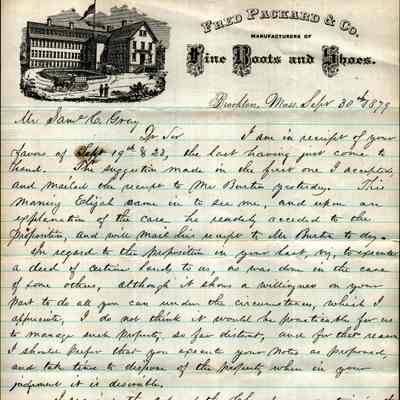 Fred Packard & Co.
MANUFACTURERS OF
Fine Boots and Shoes.
Brockton, Mass. Sept 30th 1879
Mr Saml C. Gray
Dr Sir I am in receipt of your
favors of Sept 19th & 23, the last having just come to
hand. The suggestion made in the first one I accepted,
and mailed the receipt to Mr Burton yesterday. This
morning Elijah came in to see me, and upon an
explanation of the case he readily acceded to the
proposition, and will mail his receipt to Mr Burton to-day.
In regard to the proposition in your last, viz, to execute
a deed of certain lands to us, as was done in the case
of some others, although it shows a willingness on your
part to do all you can under the circumstances, which I
appreciate, I do not think it would be practicable for us
to manage such property, so far distant, and for that reason
I should prefer that you execute your notes as proposed,
and take time to dispose of the property when in your
judgement it is desirable.